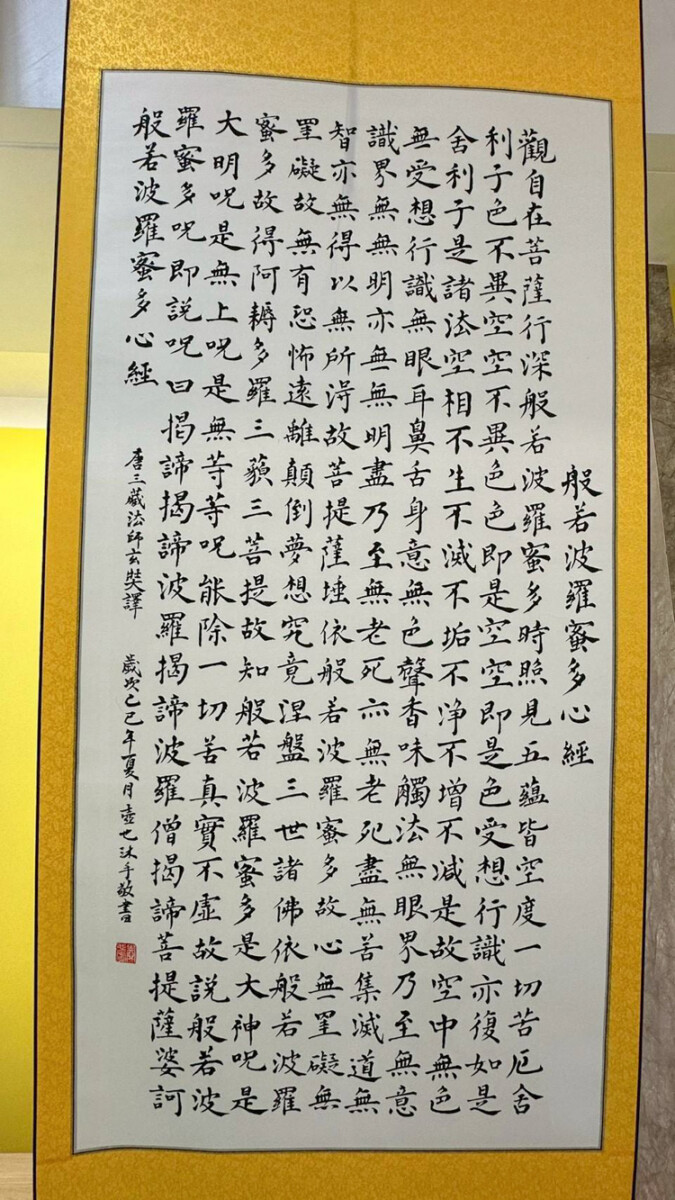 般若波羅蜜多心經
觀自在菩薩行深般若波羅蜜多時照見五蘊皆空度一切苦厄舍
利子色不異空空不異色色即是空空即是色受想行識亦復如是
舍利子是諸法空相不生不滅不垢不净不增不減是故空中無色
無受想行識無眼耳鼻舌身意無色聲香味觸法無眼界乃至無意
識界無無明亦無無明盡乃至無老死亦無老死盡無苦集滅道無
智亦無得以無所得故菩提薩埵依般若波羅蜜多故心無罣礙無
罣礙故無有恐怖遠離顛倒夢想究竟涅盤三世諸佛依般若波羅
蜜多故得阿耨多羅三藐三菩提故知般若波羅蜜多是大神呪是
大明呪是無上呪是無等等呪能除一切苦真實不虛故說般若波
羅蜜多呪即說呪曰揭諦揭諦波羅揭諦波羅僧揭諦菩提薩婆訶
般若波羅蜜多心經
唐三藏法師玄奘譯 歲次乙巳年夏月沐手敬書